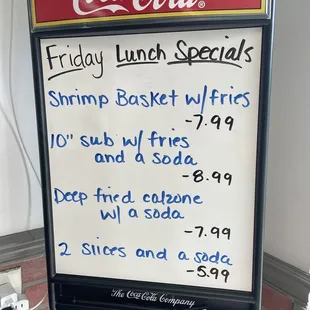 Coca-Cola®
Friday Lunch Specials
Shrimp Basket w/fries
-7.99
10" sub w/ fries
and a soda
-8.99
Deep fried calzone
w/ a soda
-7.99
2 slices and a soda
-5.99
The Coca-Cola Company